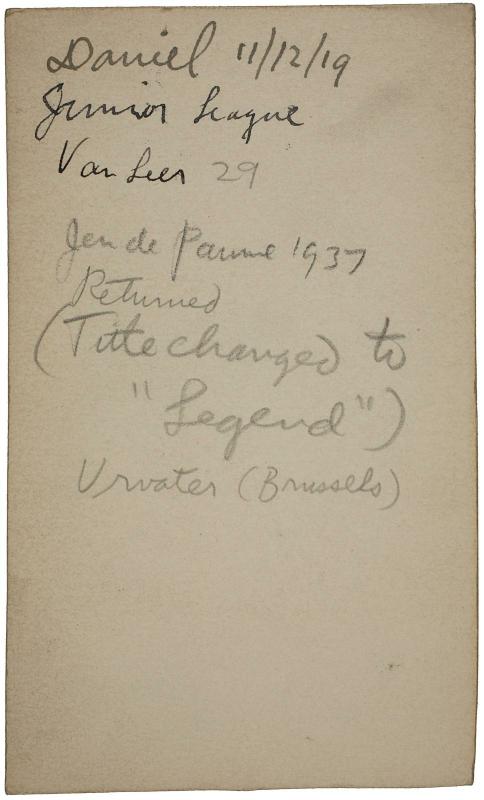 Daniel 11/12/19
Junior League
Van Leer 29
Jeu de Paume 1937
Returned
(Title changed to
"Legend")
Urvater (Brussels)